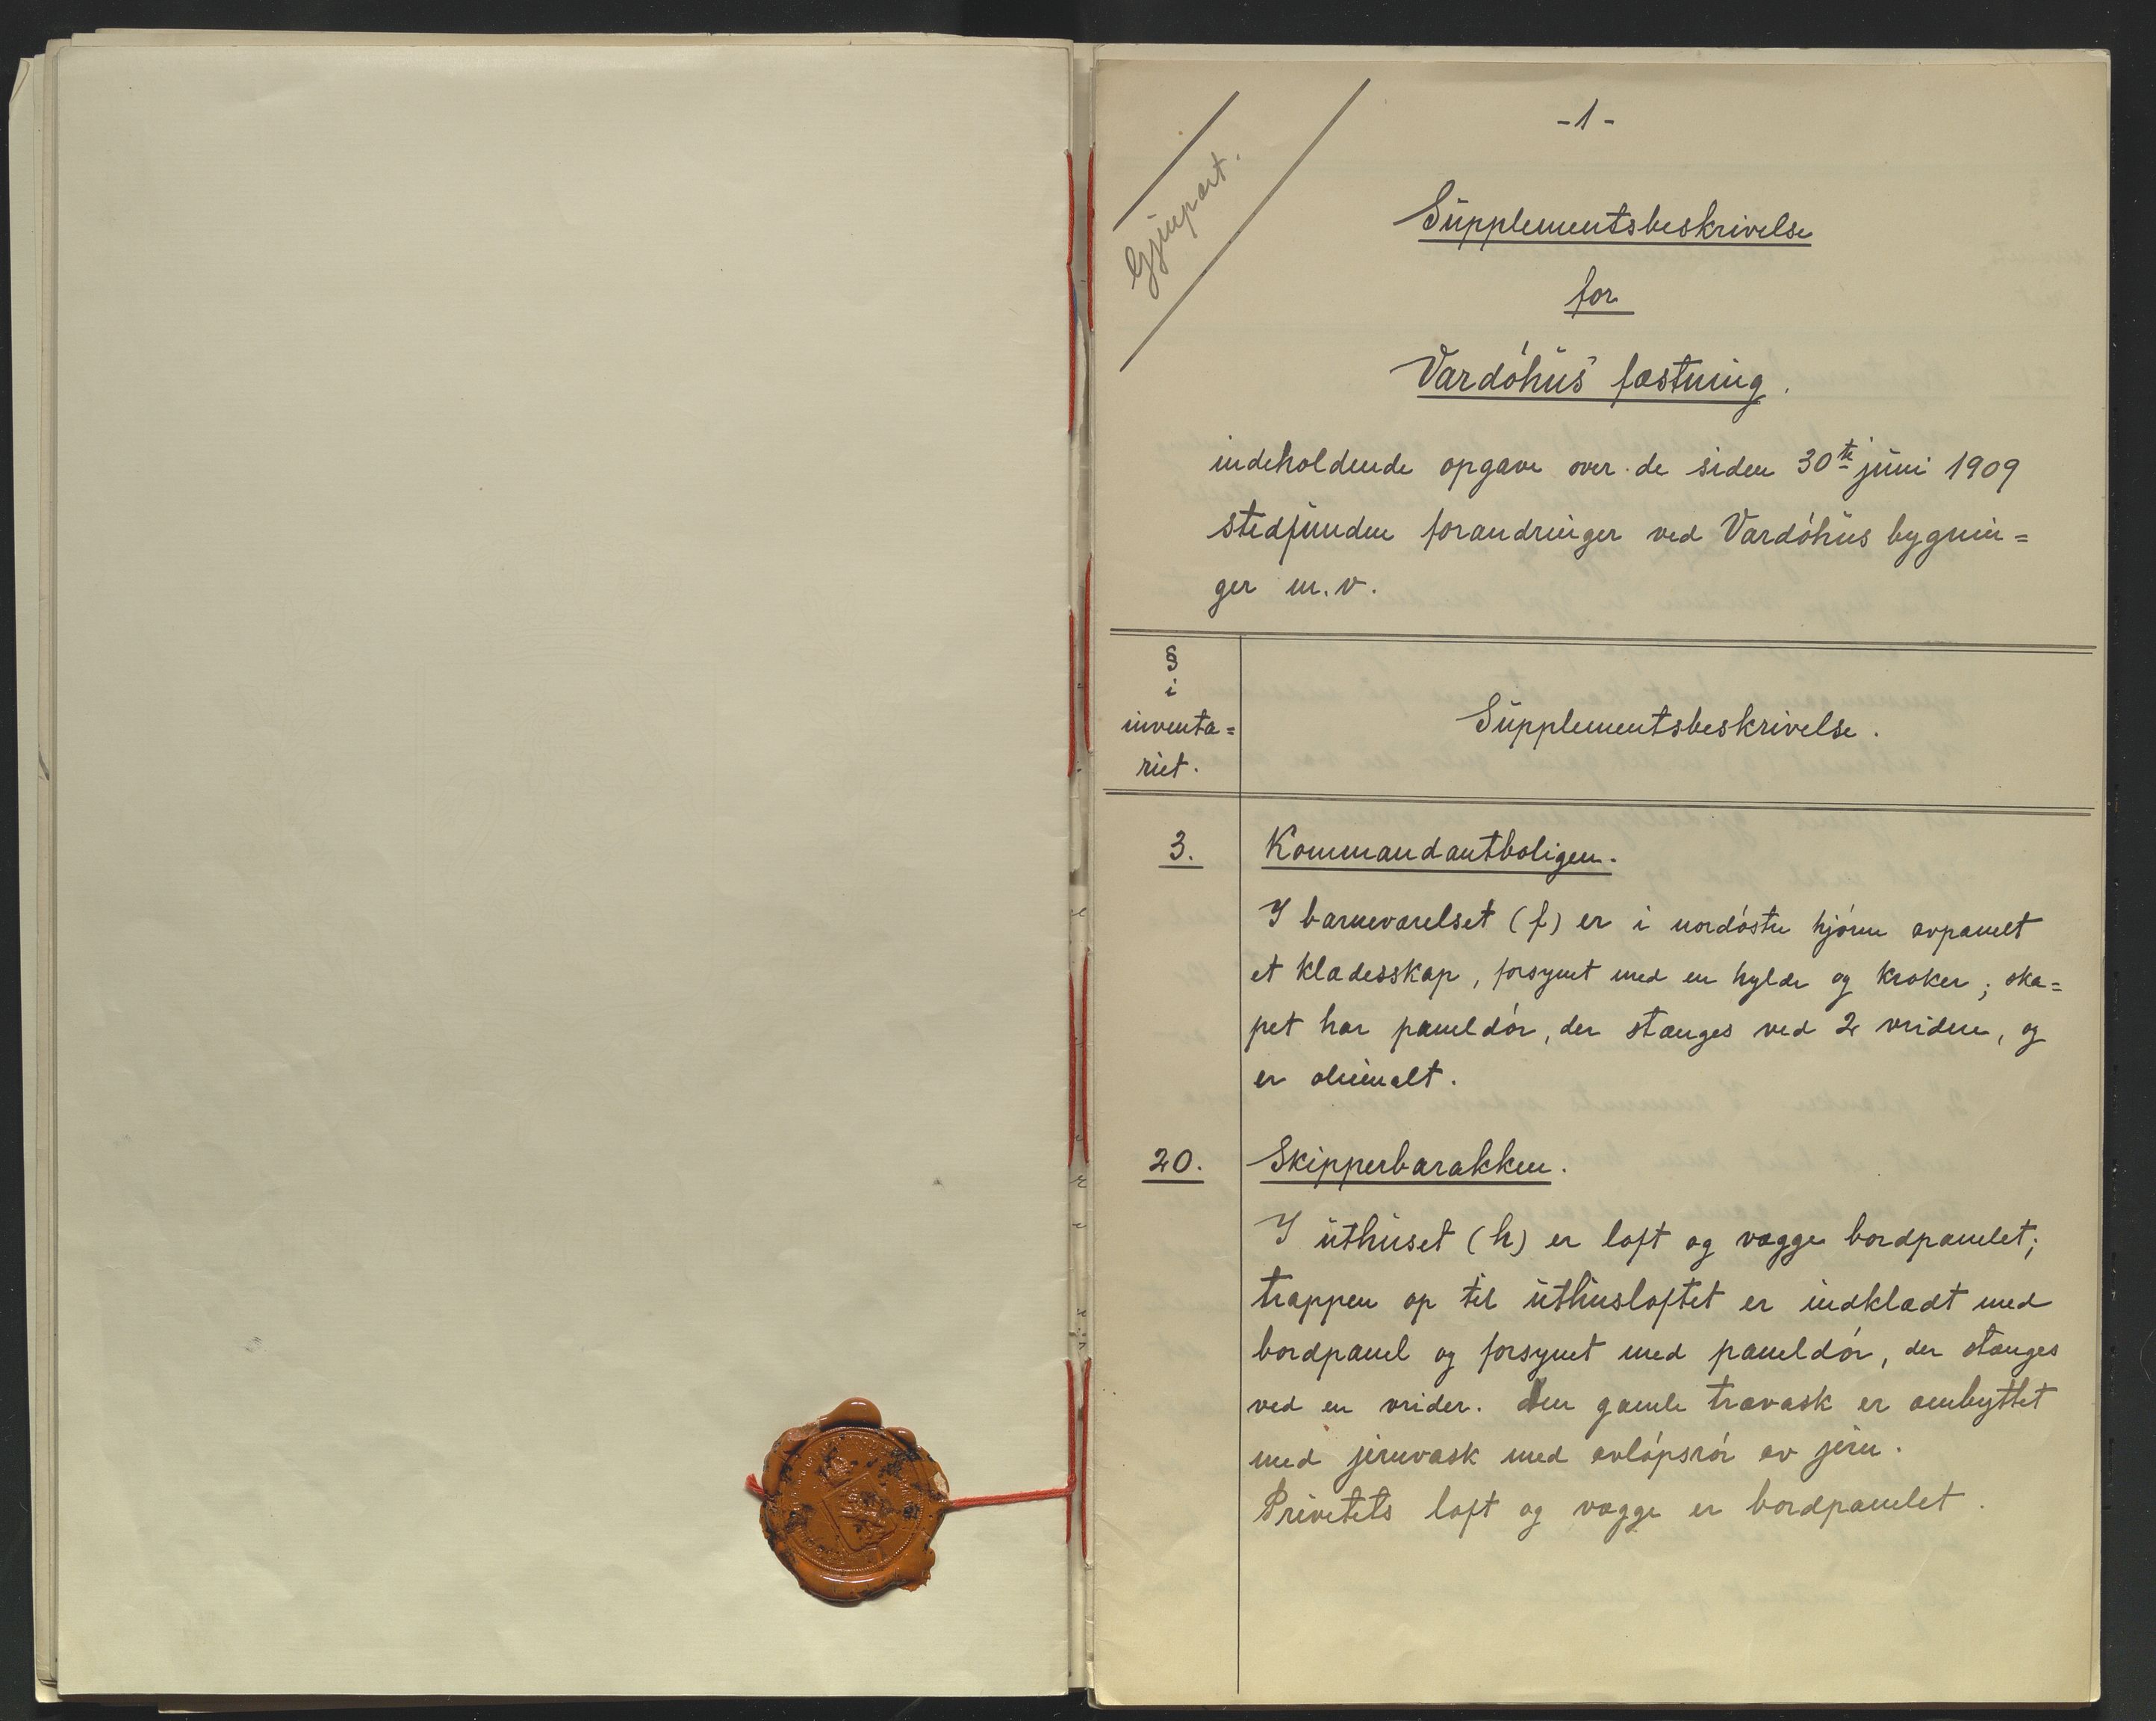 -1-
Gjenpart.
Supplementsbeskrivelse
for
Vardøhus fæstning.
indeholdende opgave over de siden 30te juni 1909
stedfundne forandringer ved Vardøhus bygnin=
ger m.v.
§
i
inventa=
riet.
Supplementsbeskrivelse.
3. Kommandantboligen.
I barneværelset (f) er i nordøstre hjørne avpanelt
et klædesskap, forsynet med en hylde og kroker; ska=
pet har paneldør, der stænges ved 2 vridere, og
er oliemalt.
20. Skipperbarakken.
I uthuset (h) er loft og vægge bordpanelet;
trappen op til uthusloftet er indklædt med
bordpanel og forsynet med paneldør, der stænges
ved en vrider. Den gamle trævask er ombyttet
med jernvask med avløpsrør av jern.
Privetets loft og vægge er bordpanelet.